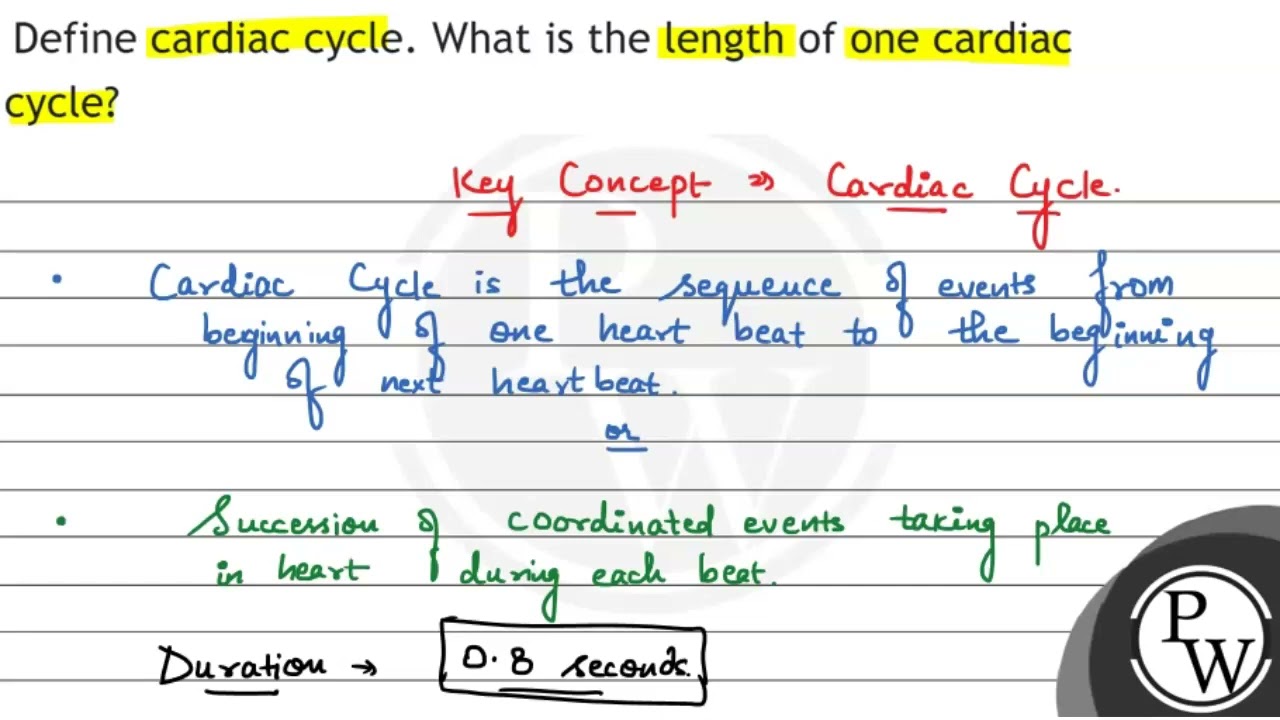 Define cardiac cycle. What is the length of one cardiac
cycle?
Key Concept ⇒ Cardiac Cycle.
• Cardiac Cycle is the sequence of events from
beginning of one heart beat to the beginning
of next heartbeat.
or
• Succession of coordinated events taking place
in heart during each beat.
Duration → 0.8 seconds.
PW
PW